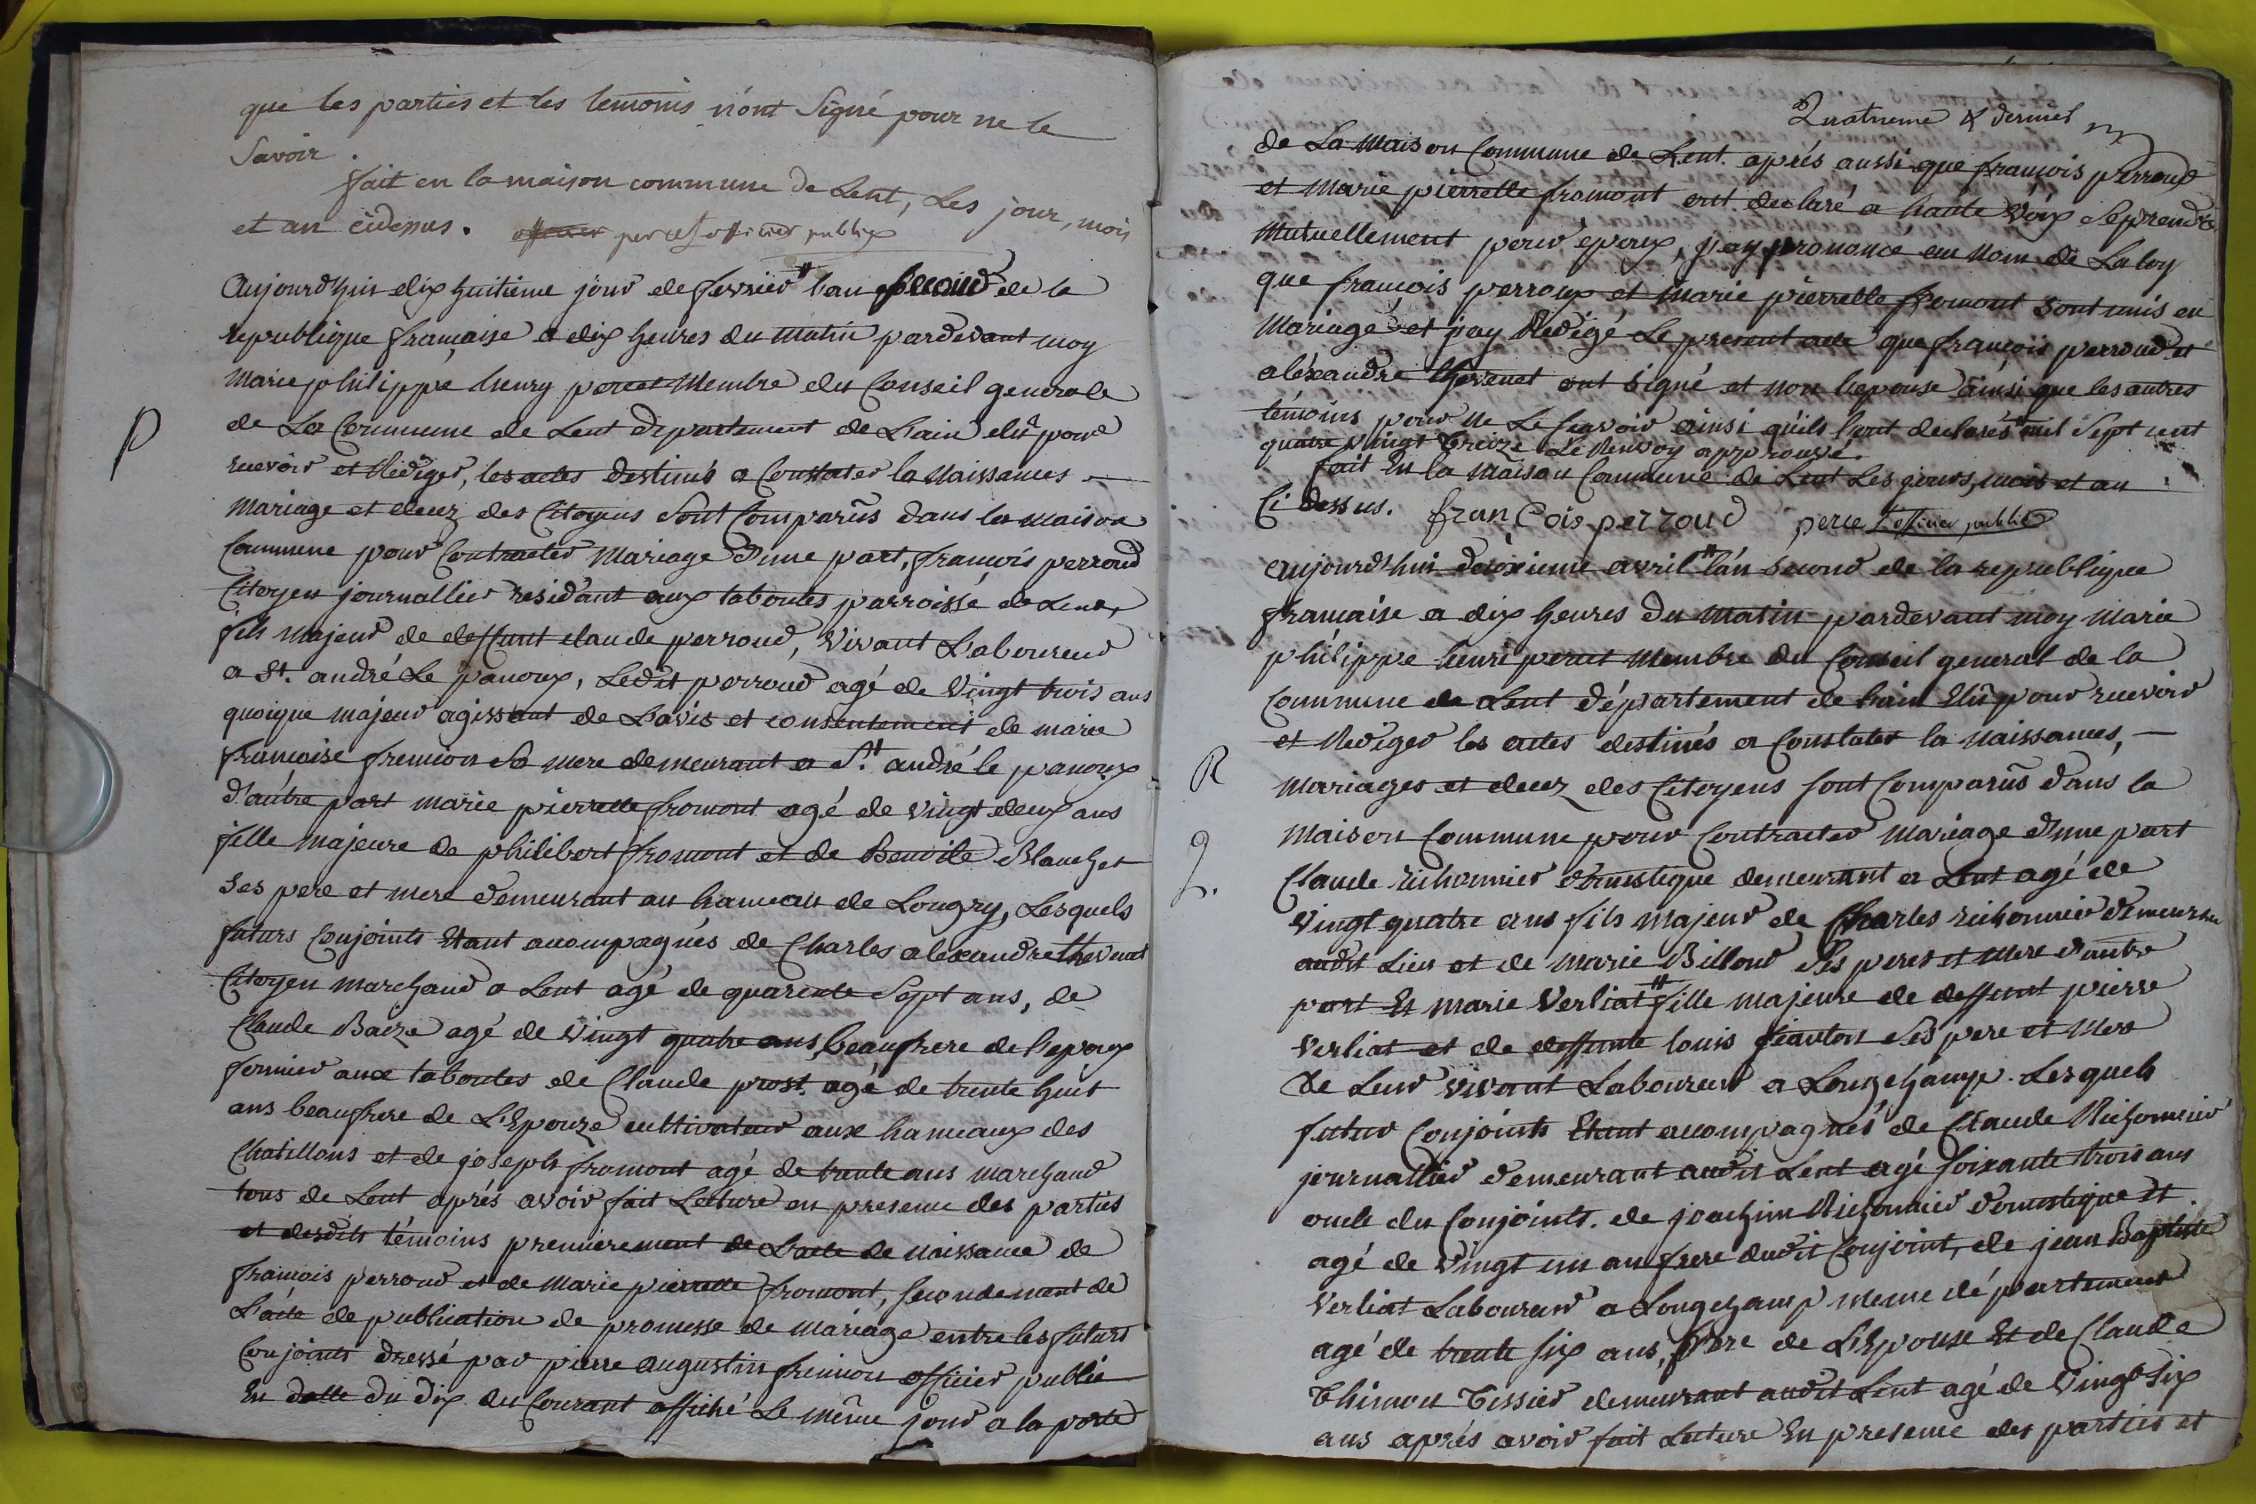 que les parties et les temoins n'ont signé pour ne le
Savoir.
fait en la maison commune de Lent, Les jour, mois
et an cidessus. percet officier public
Aujourdhuy dix huitieme jour de fevrier # l'an second de la
republique française a dix heures du matin pardevant moy
Marie philippe henry percet Membre du Conseil generale
de La Commune de Lent departement de L'ain elû pour
recevoir et Rediger, les actes destinés a Constater la Naissances
P
Mariage et decez des Citoyens sont Comparûs dans la maison
Commune pour Contracter Mariage d'une part, françois perroud
Citoyen journallier residant aux taboutes parroisse de Lent,
fils majeur de deffunt claude perroud, Vivant Laboureur
a St. andré Le panoux, Ledit perroud agé de Vingt trois ans
quoique majeur agissant de L'avis et consentement de marie
françoise fremion Sa mere demeurant a St. andré le panoux
d'autre part marie pierrette fromont agé de vingt deux ans
fille majeure de philibert fromont et de Benoite Blanchet
ses pere et mere demeurant au hameau de Longry, Lesquels
futurs Conjoints Etant acompagnés de Charles alexandre thevenet
Citoyen marchand a Lent agé de quarente Sept ans, de
Claude Baeze agé de Vingt quatre ans beaufrere de l'epoux
fermier aux taboutes de Claude prost agé de trente huit
ans beaufrere de L'Epouze cultivateur aux hameaux des
Chatillons et de joseph fromont agé de trente ans marchand
tous de Lent aprés avoir fait Lecture en presence des parties
et desdits témoins premierement de L'acte de naissance de
françois perroud et de Marie pierrette fromont, secondement de
L'acte de publication de promesse de mariage entre les futurs
Conjoints dressé par pierre augustin fremion officier public
En datte du dix du Courant affiché Le même jour a la porte
Quatrieme & dernier
de La Maison Commune de Lent. aprés aussi que françois perroud
et Marie pierrette fromont ont declaré a haute Voix Seprendre
Mutuellement pour époux, j'ay prononcé au Nom de La loy
que françois perroux et Marie pierrette fromont sont unis en
Mariage et jay Redigé Le present acte que françois perroud et
aléxandre thevenet ont signé et non l'epouse ainsi que les autres
temoins pour ne Le sçavoir ainsi qu'ils l'ont declarés # mil Sept cent
quatre vingt treize Le Renvoy approuvé.
fait En la Maison Commune de Lent Les jours, mois et an
Ci dessus. françois perroud perce L'officier public
Aujourd'hui deuxieme avril # l'an second de la republique
française a dix heures du Matin pardevant moy Marie
philippe henri percet Membre du Conseil general de la
Commune de Lent département de L'ain Elû pour recevoir
et Rediger les actes destinés a Constater la Naissances,
R
Mariages et decez des Citoyens sont Comparûs dans la
Maison Commune pour Contracter Mariage d'une part
Claude richonnier domestique demeurant a Lent agé de
Vingt quatre ans fils majeur de Charles richonnier demeurant
audit Lieu et de Marie Billoud Ses peres et Mere d'autre
part Et Marie Verliat # fille majeure de deffunt pierre
Verliat et de deffunte louis Ses pere et Mere
de Leur Vivant Laboureur a Longchamp. Lesquels
futur Conjoints Etant acompagnés de Claude Richonnier
journallier demeurant audit Lent agé soixante trois ans
oncle du Conjoints. de joachim Richonnier domestique et
agé de Vingt un an frere dudit Conjoint, de jean Baptiste
Verliat Laboureur a Longchamp meme département
agé de trente six ans, frere de L'Epouse Et de Claude
Thimon Tissier demeurant audit Lent agé de Vingt Six
ans aprés avoir fait Lecture En presence des parties et